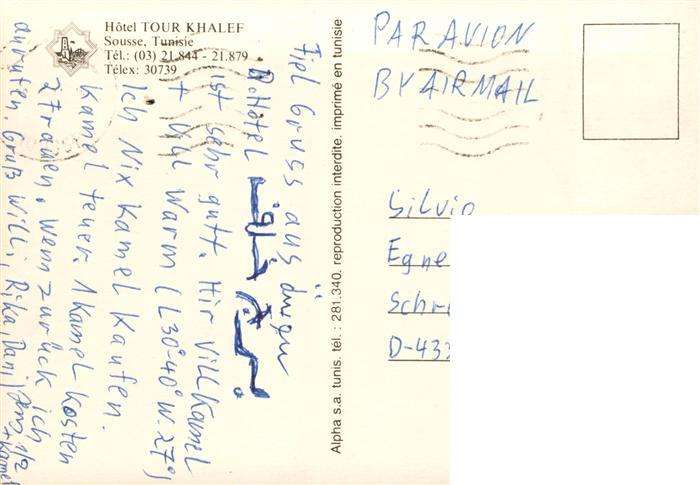 Hôtel TOUR KHALEF
Sousse, Tunisie
Tél.: (03) 21.844 - 21.879
Télex: 30739
Fiel Gruss aus
D. Hotel
ist sehr gutt. Hir Vill Kamel
+ Vill Warm (L30°-40° W. 27°)
Ich Nix Kamel Kaufen.
Kamel teuer. 1 Kamel Kosten
2 Frauen. Wenn zurück ich
anrufen. Gruß Willi, Rika, Dani, 1/2
+ Kamel
Alpha s.a. tunis. tél. : 281.340. reproduction interdite. imprimé en tunisie
PAR AVION
BY AIRMAIL
Silvio
Egne
Schr
D-433